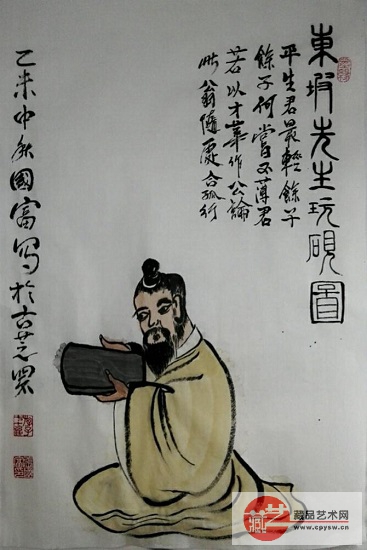 東坡先生玩硯圖
平生君最輕餘子
餘子何嘗不薄君
若以才華作公論
此翁隨處合孤行
乙未中秋國富寫於古芝罘
藏品艺术网
www.cpysw.cn